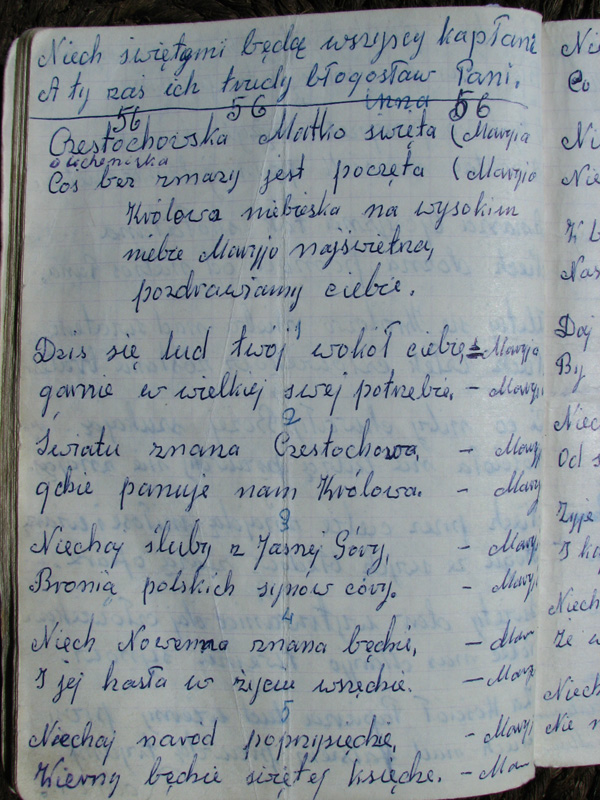 Niech świętymi będą wszyscy kapłani
A ty zaś ich trudy błogosław Pani.
56 56 inna 56
Częstochowska Matko święta (Maryja
o Licheńska
Coś bez zmazy jest poczęta (Maryjo
Królowa niebieska na wysokim
niebie Maryjo najświętna,
pozdrawiamy ciebie.
1
Dziś się lud twój wokół ciebie = Maryja
garnie w wielkiej swej potrzebie. - Maryj
2
Światu znana Częstochowa, - Mary
gdzie panuje nam Królowa. - Mary
3
Niechaj śluby z Jasnej Góry, - Mary
Bronią polskich synów córy. - Mary
4
Niech Nowenna znana będzie, - Mar
I jej hasła w życiu wszędzie. - Mary
5
Niechaj naród poprzysiędze, - Mary
Wierny będzie świętej księdze. - Ma
Nie
Co
Ni
Nie
Nas
Daj
By
Niec
Od s
Żyje
I ka
Niech
Że w
Niech
Nie n